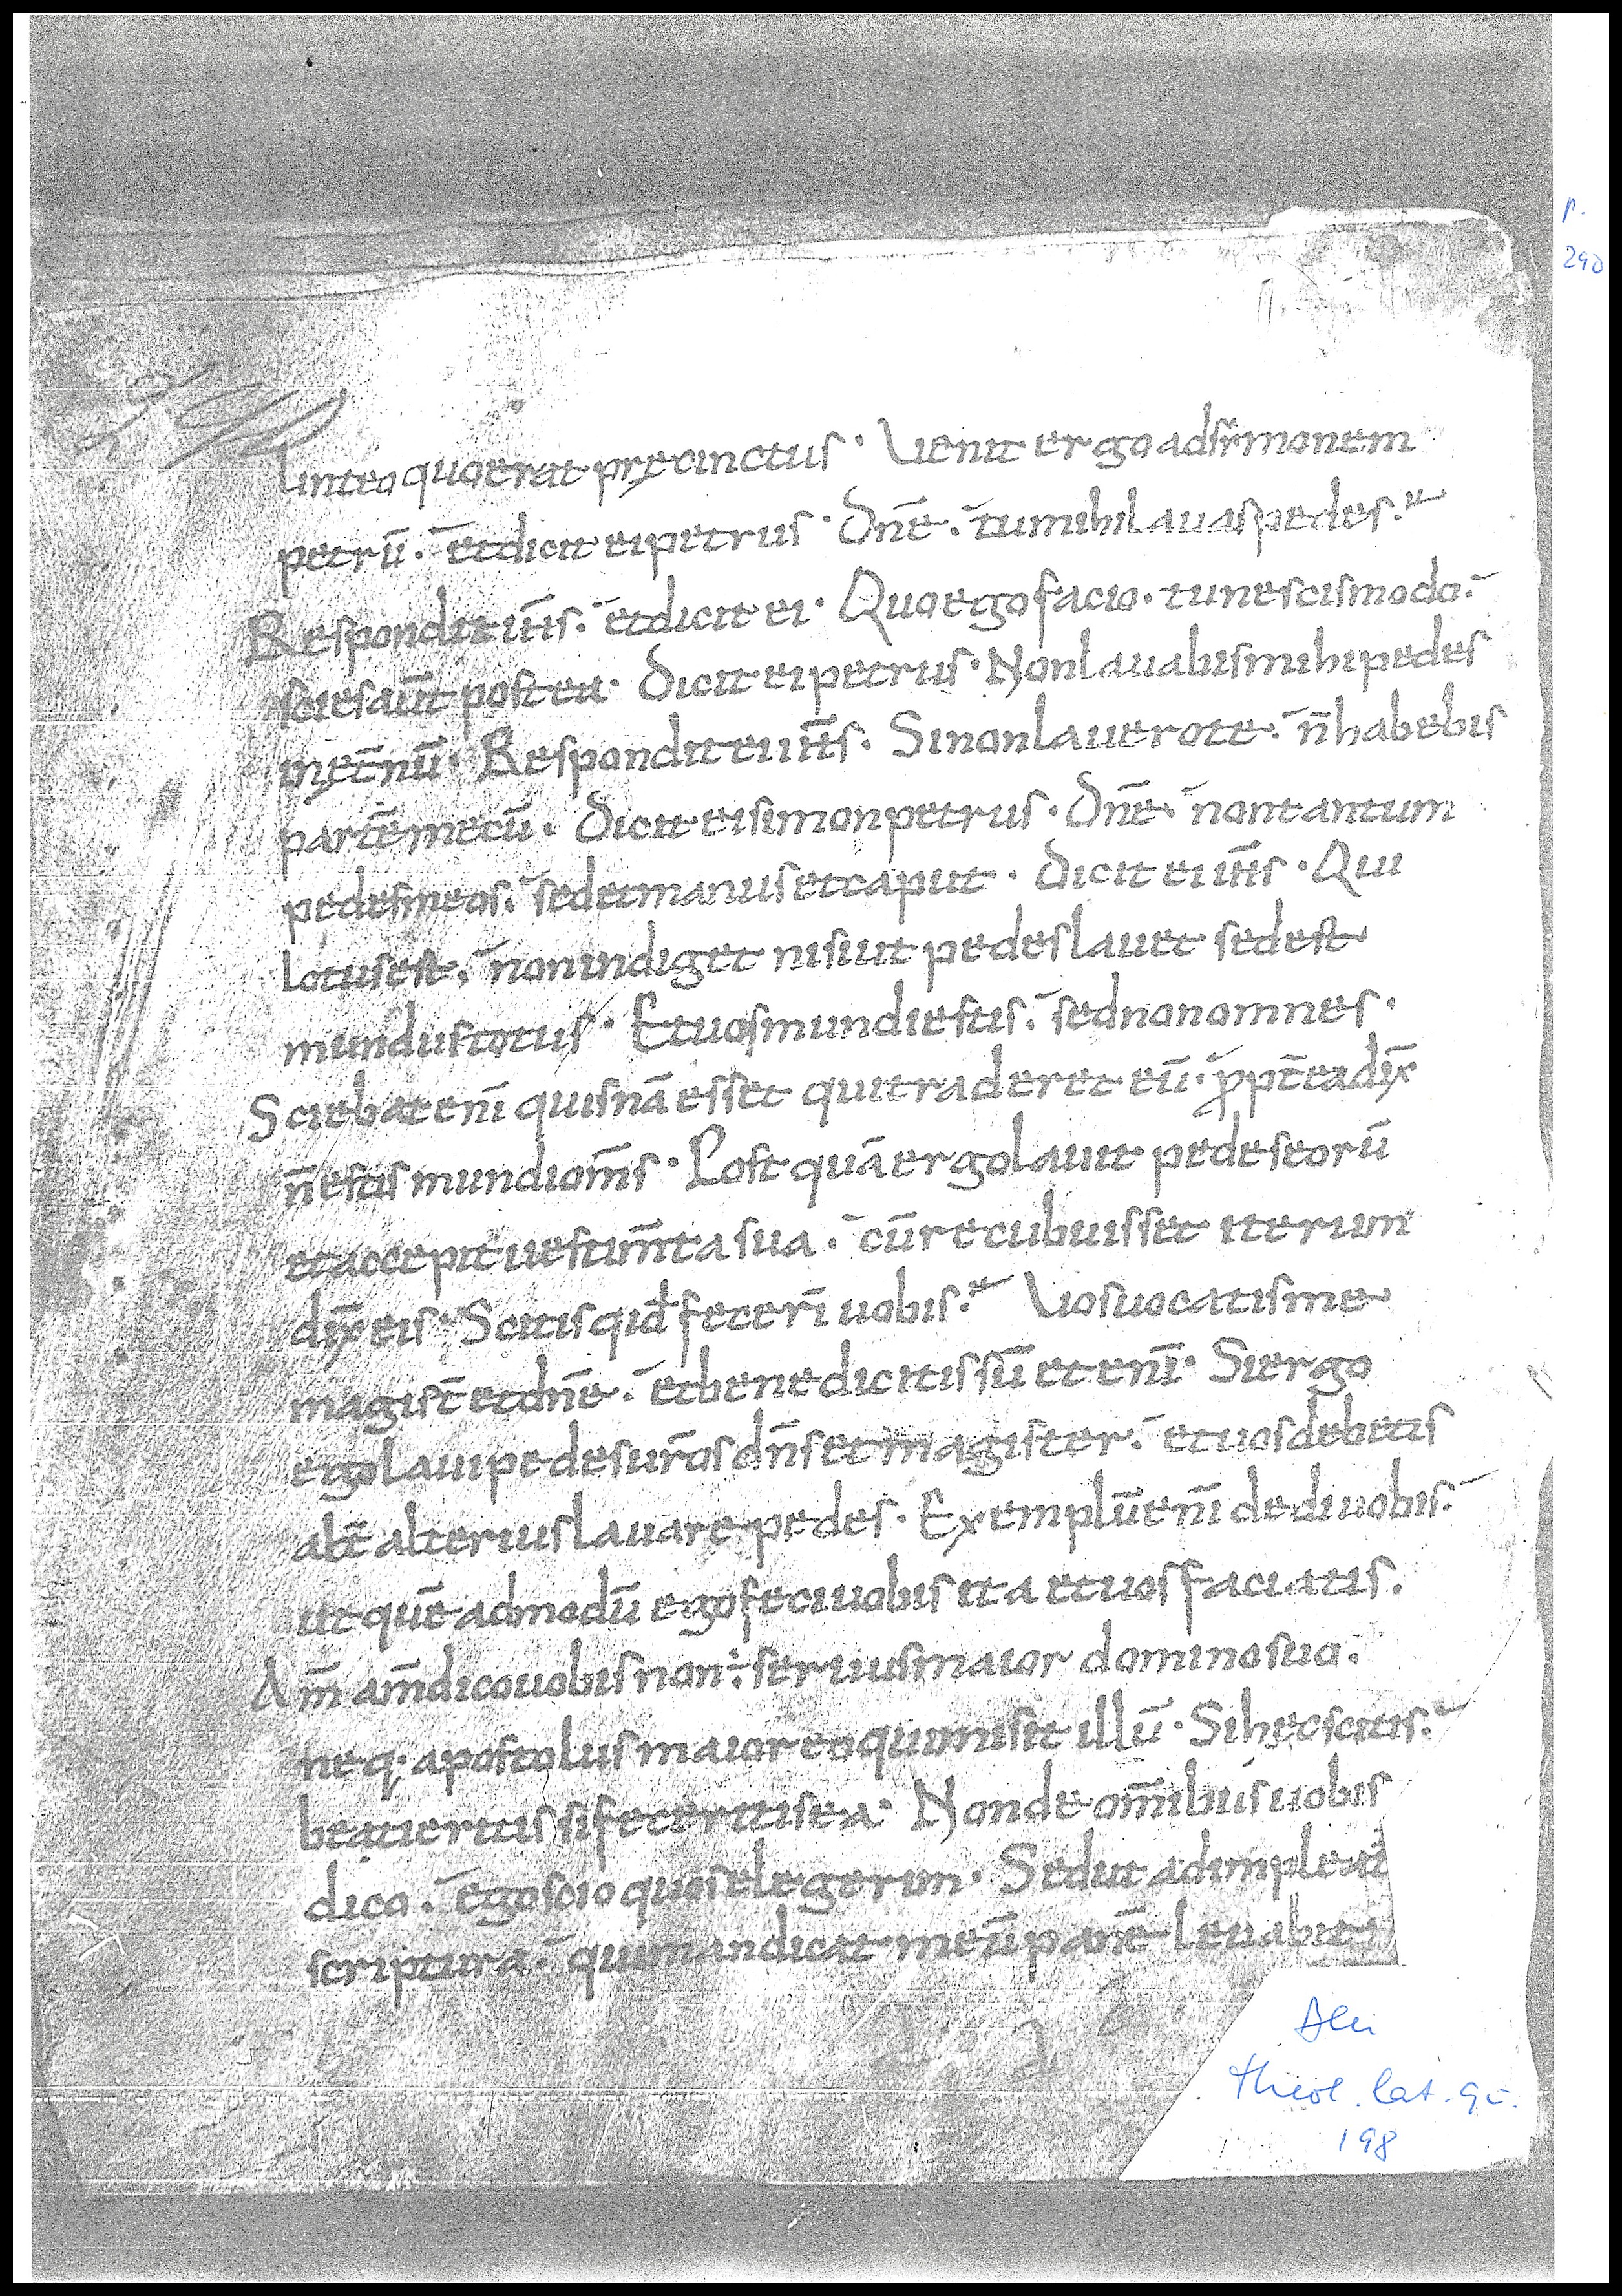 p.
290
linteo quo erat pręcinctus · Uenit ergo ad sīmonem
petrū · et dicit ei petrus · Dn̄e · tu mihi lauas pedes ·
Respondit ih̄s · et dicit ei · Quo ego facio · tu nescis modo ·
scies aūt postea · Dicit ei petrus · Non lauabis mihi pedes
in ęt̄nū · Respondit ei ih̄s · Si non lauero te · n̄ habebis
partē mecū · Dicit ei simon petrus · Dn̄e · non tantum
pedes meos · sed et manus et caput · Dicit ei ih̄s · Qui
lotus est · non indiget nisi ut pedes lauet sed est
mundus totus · Et uos mundi estis · sed non omnes ·
Sciebat enī quisnā esset qui traderet eū · ꝓpt̄ea dix̄
n̄ estis mundi om̄s · Post quā ergo lauit pedes eorū
et accepit uestim̄ta sua · cū recubuisset iterum
dix̄ eis · Scitis qid̄ fecerī uobis · Uos uocatis me
magist̄ et dn̄e · et bene dicitis sū et enī · Si ergo
ego laui pedes ur̄os dn̄s et magister · et uos debetis
alt̄ alterius lauare pedes · Exemplū enī dedi uobis ·
ut quē admodū ego feci uobis ita et uos faciatis ·
Am̄ am̄ dico uobis non ÷ seruus maior domino suo ·
neq· apostolus maior eo qui misit illū · Si hęc scitis ·
beati eritis si feceritis ea · Non de om̄ibus uobis
dico · ego scio quos elegerim · Sed ut adimpleat
scriptura · qui mandicat meū panē leuabit
theol. lat. qu.
198